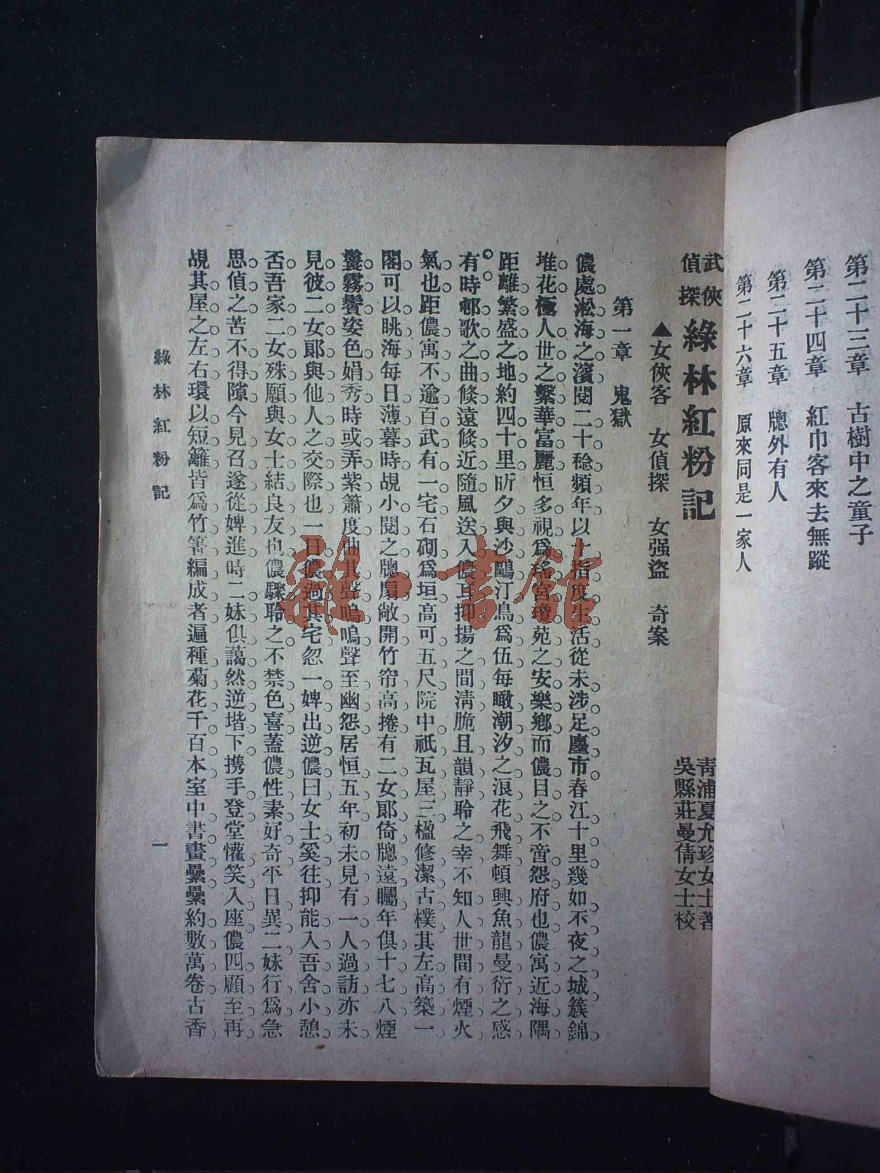 第二十三章　古樹中之童子
第二十四章　紅巾客來去無蹤
第二十五章　牕外有人
第二十六章　原來同是一家人
武俠偵探　綠林紅粉記
青浦夏允珍女士著
吳縣莊曼倩女士校
▲女俠客　女偵探　女强盜　奇案
第一章　鬼獄
儂處淞海之濱閱二十稔頻年以十指度生活從未涉足塵市春江十里幾如不夜之城簇錦
堆花極人世之繫華富麗恒多視爲瑤宮瓊苑之安樂鄉而儂目之不啻怨府也儂寓近海隅
距離繁盛之地約四十里昕夕與沙鷗汀鳥爲伍每瞰潮汐之浪花飛舞頓興魚龍曼衍之感
有時邨歌之曲倐遠倐近隨風送入儂耳抑揚之間淸脆且韻靜聆之幸不知人世間有煙火
氣也距儂寓不逾百武有一宅石砌爲垣高可五尺院中祇瓦屋三楹修潔古樸其左高築一
閣可以眺海每日薄暮時覘小閱之牕扇敞開竹帘高捲有二女郎倚牕遠矚年俱十七八煙
鬟霧鬢姿色娟秀時或弄紫簫度曲聲嗚嗚聲至幽怨居恒五年初未見有一人過訪亦未
見彼二女郎與他人之交際也一日儂過其宅忽一婢出逆儂曰女士奚往抑能入吾舍小憩
否吾家二女殊願與女士結良友也儂驟聆之不禁色喜蓋儂性素好奇平日異二妹行爲急
思偵之苦不得隙今見召遂從婢進時二妹俱藹然逆堦下携手登堂懽笑入座儂四顧至再
覘其屋之左右環以短籬皆爲竹箸編成者遍種菊花千百本室中書畫纍纍約數萬卷古香
綠林紅粉記
一